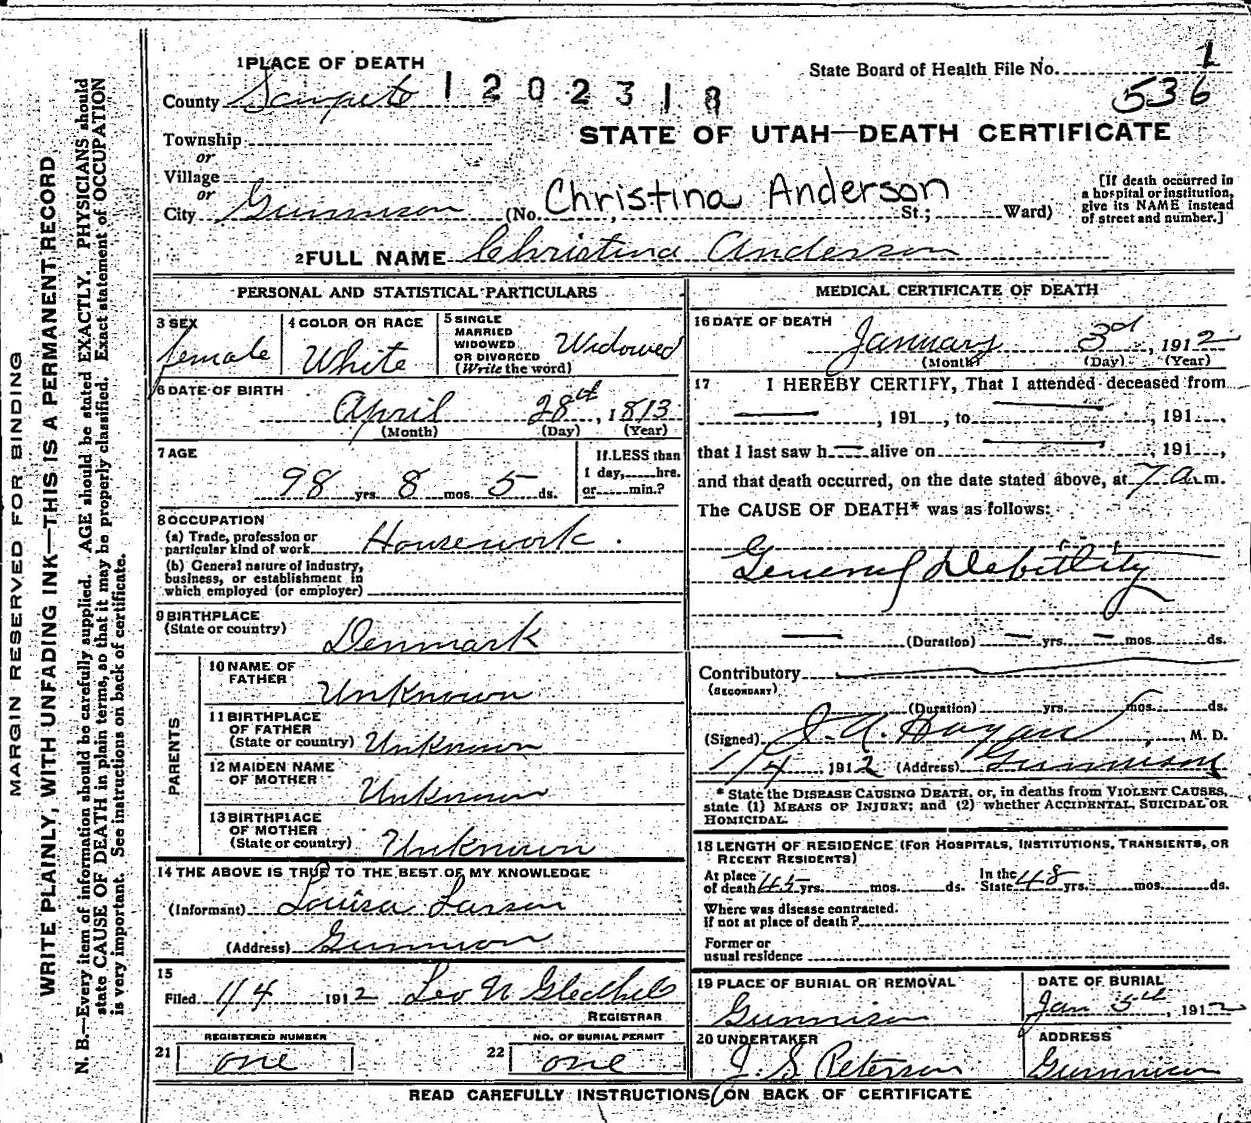 MARGIN RESERVED FOR BINDING
WRITE PLAINLY, WITH UNFADING INK—THIS IS A PERMANENT RECORD
N. B.—Every item of information should be carefully supplied. AGE should be stated EXACTLY. PHYSICIANS should
state CAUSE OF DEATH in plain terms, so that it may be properly classified. Exact statement of OCCUPATION
is very important. See instructions on back of certificate.
1 PLACE OF DEATH
State Board of Health File No. 1
County Sanpete 1202318
536
STATE OF UTAH—DEATH CERTIFICATE
Township
or
Village
or
City Gunnison (No. Christina Anderson St.; Ward)
[If death occurred in
a hospital or institution,
give its NAME instead
of street and number.]
2 FULL NAME Christina Anderson
PERSONAL AND STATISTICAL PARTICULARS
3 SEX
female
4 COLOR OR RACE
White
5 SINGLE
MARRIED
WIDOWED
OR DIVORCED
(Write the word)
Widowed
6 DATE OF BIRTH
April 28th, 1813
(Month) (Day) (Year)
7 AGE
98 yrs. 8 mos. 5 ds.
If LESS than
1 day, hrs.
or min.?
8 OCCUPATION
(a) Trade, profession or
particular kind of work Housework.
(b) General nature of industry,
business, or establishment in
which employed (or employer)
9 BIRTHPLACE
(State or country) Denmark
PARENTS
10 NAME OF
FATHER
Unknown
11 BIRTHPLACE
OF FATHER
(State or country) Unknown
12 MAIDEN NAME
OF MOTHER
Unknown
13 BIRTHPLACE
OF MOTHER
(State or country) Unknown
14 THE ABOVE IS TRUE TO THE BEST OF MY KNOWLEDGE
(Informant) Louisa Larson
(Address) Gunnison
15
Filed 1/4 1912 Leo N Gledhill
REGISTRAR
REGISTERED NUMBER
21 one
NO. OF BURIAL PERMIT
22 one
MEDICAL CERTIFICATE OF DEATH
16 DATE OF DEATH
January 3rd, 1912
(Month) (Day) (Year)
17 I HEREBY CERTIFY, That I attended deceased from
— , 191 , to — , 191 ,
that I last saw h— alive on — , 191 ,
and that death occurred, on the date stated above, at 7 a. m.
The CAUSE OF DEATH* was as follows:
General Debility
— (Duration) — yrs. — mos. ds.
Contributory —
(SECONDARY)
(Duration) yrs. mos. ds.
(Signed) J. A. Hagan, M. D.
1/4, 1912 (Address) Gunnison
* State the DISEASE CAUSING DEATH, or, in deaths from VIOLENT CAUSES,
state (1) MEANS OF INJURY; and (2) whether ACCIDENTAL, SUICIDAL OR
HOMICIDAL.
18 LENGTH OF RESIDENCE (FOR HOSPITALS, INSTITUTIONS, TRANSIENTS, OR
RECENT RESIDENTS)
At place
of death 45 yrs. mos. ds.
In the
State 48 yrs. mos. ds.
Where was disease contracted.
if not at place of death?
Former or
usual residence
19 PLACE OF BURIAL OR REMOVAL
Gunnison
DATE OF BURIAL
Jan 5th, 1912
20 UNDERTAKER
J. S. Peterson
ADDRESS
Gunnison
READ CAREFULLY INSTRUCTIONS ON BACK OF CERTIFICATE